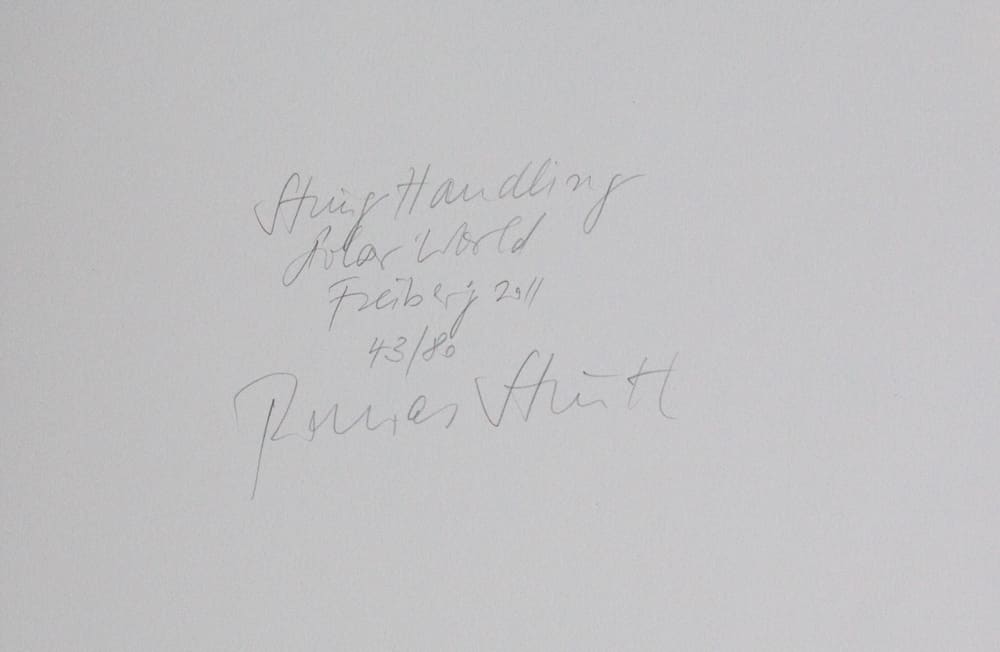 String Handling
Solar World
Freiberg 2011
43/80
Thomas Struth